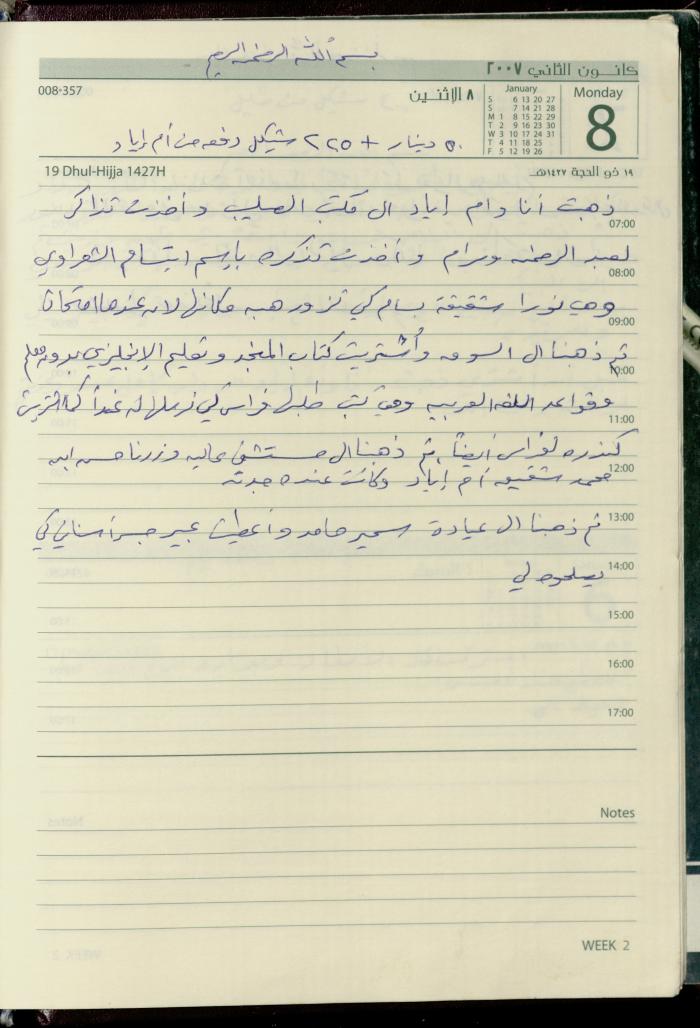 بسم الله الرحمن الرحيم
كانون الثاني ٢٠٠٧
008-357
٨ الإثنين
January
S 6 13 20 27
S 7 14 21 28
M 1 8 15 22 29
T 2 9 16 23 30
W 3 10 17 24 31
T 4 11 18 25
F 5 12 19 26
Monday
8
٥٠ دينار + ٢٢٥ شيكل دفعه من أم إياد
19 Dhul-Hijja 1427H
١٩ ذو الحجة ١٤٢٧هـ
ذهبت أنا وام إياد ال مكتب الصليب وأخذت تذاكر
07:00
لعبد الرحمن ومرام وأخذت تذكره بإسم ابتسام الشعراوي
08:00
وهي نورا شقيقة بسام كي تزور هبه مكانها لان عندها امتحان
09:00
ثم ذهبنا ال السوق وأشتريت كتاب المنجد وتعليم الإنجليزي بدون معلم
10:00
وقواعد اللغه العربيه وهي كتب طلبها فراس كي نرسلها له غداً كما اشتريت
11:00
كندره لفراس أيضاً ثم ذهبنا ال مستشفى عاليه وزرنا حسن ابن
12:00
محمد شقيق أم إياد وكانت عنده جدته
13:00
ثم ذهبنا ال عيادة سمير حامد وأعطيت عبير جسر أسناني كي
14:00
يصلحوه لي
15:00
16:00
17:00
Notes
WEEK 2